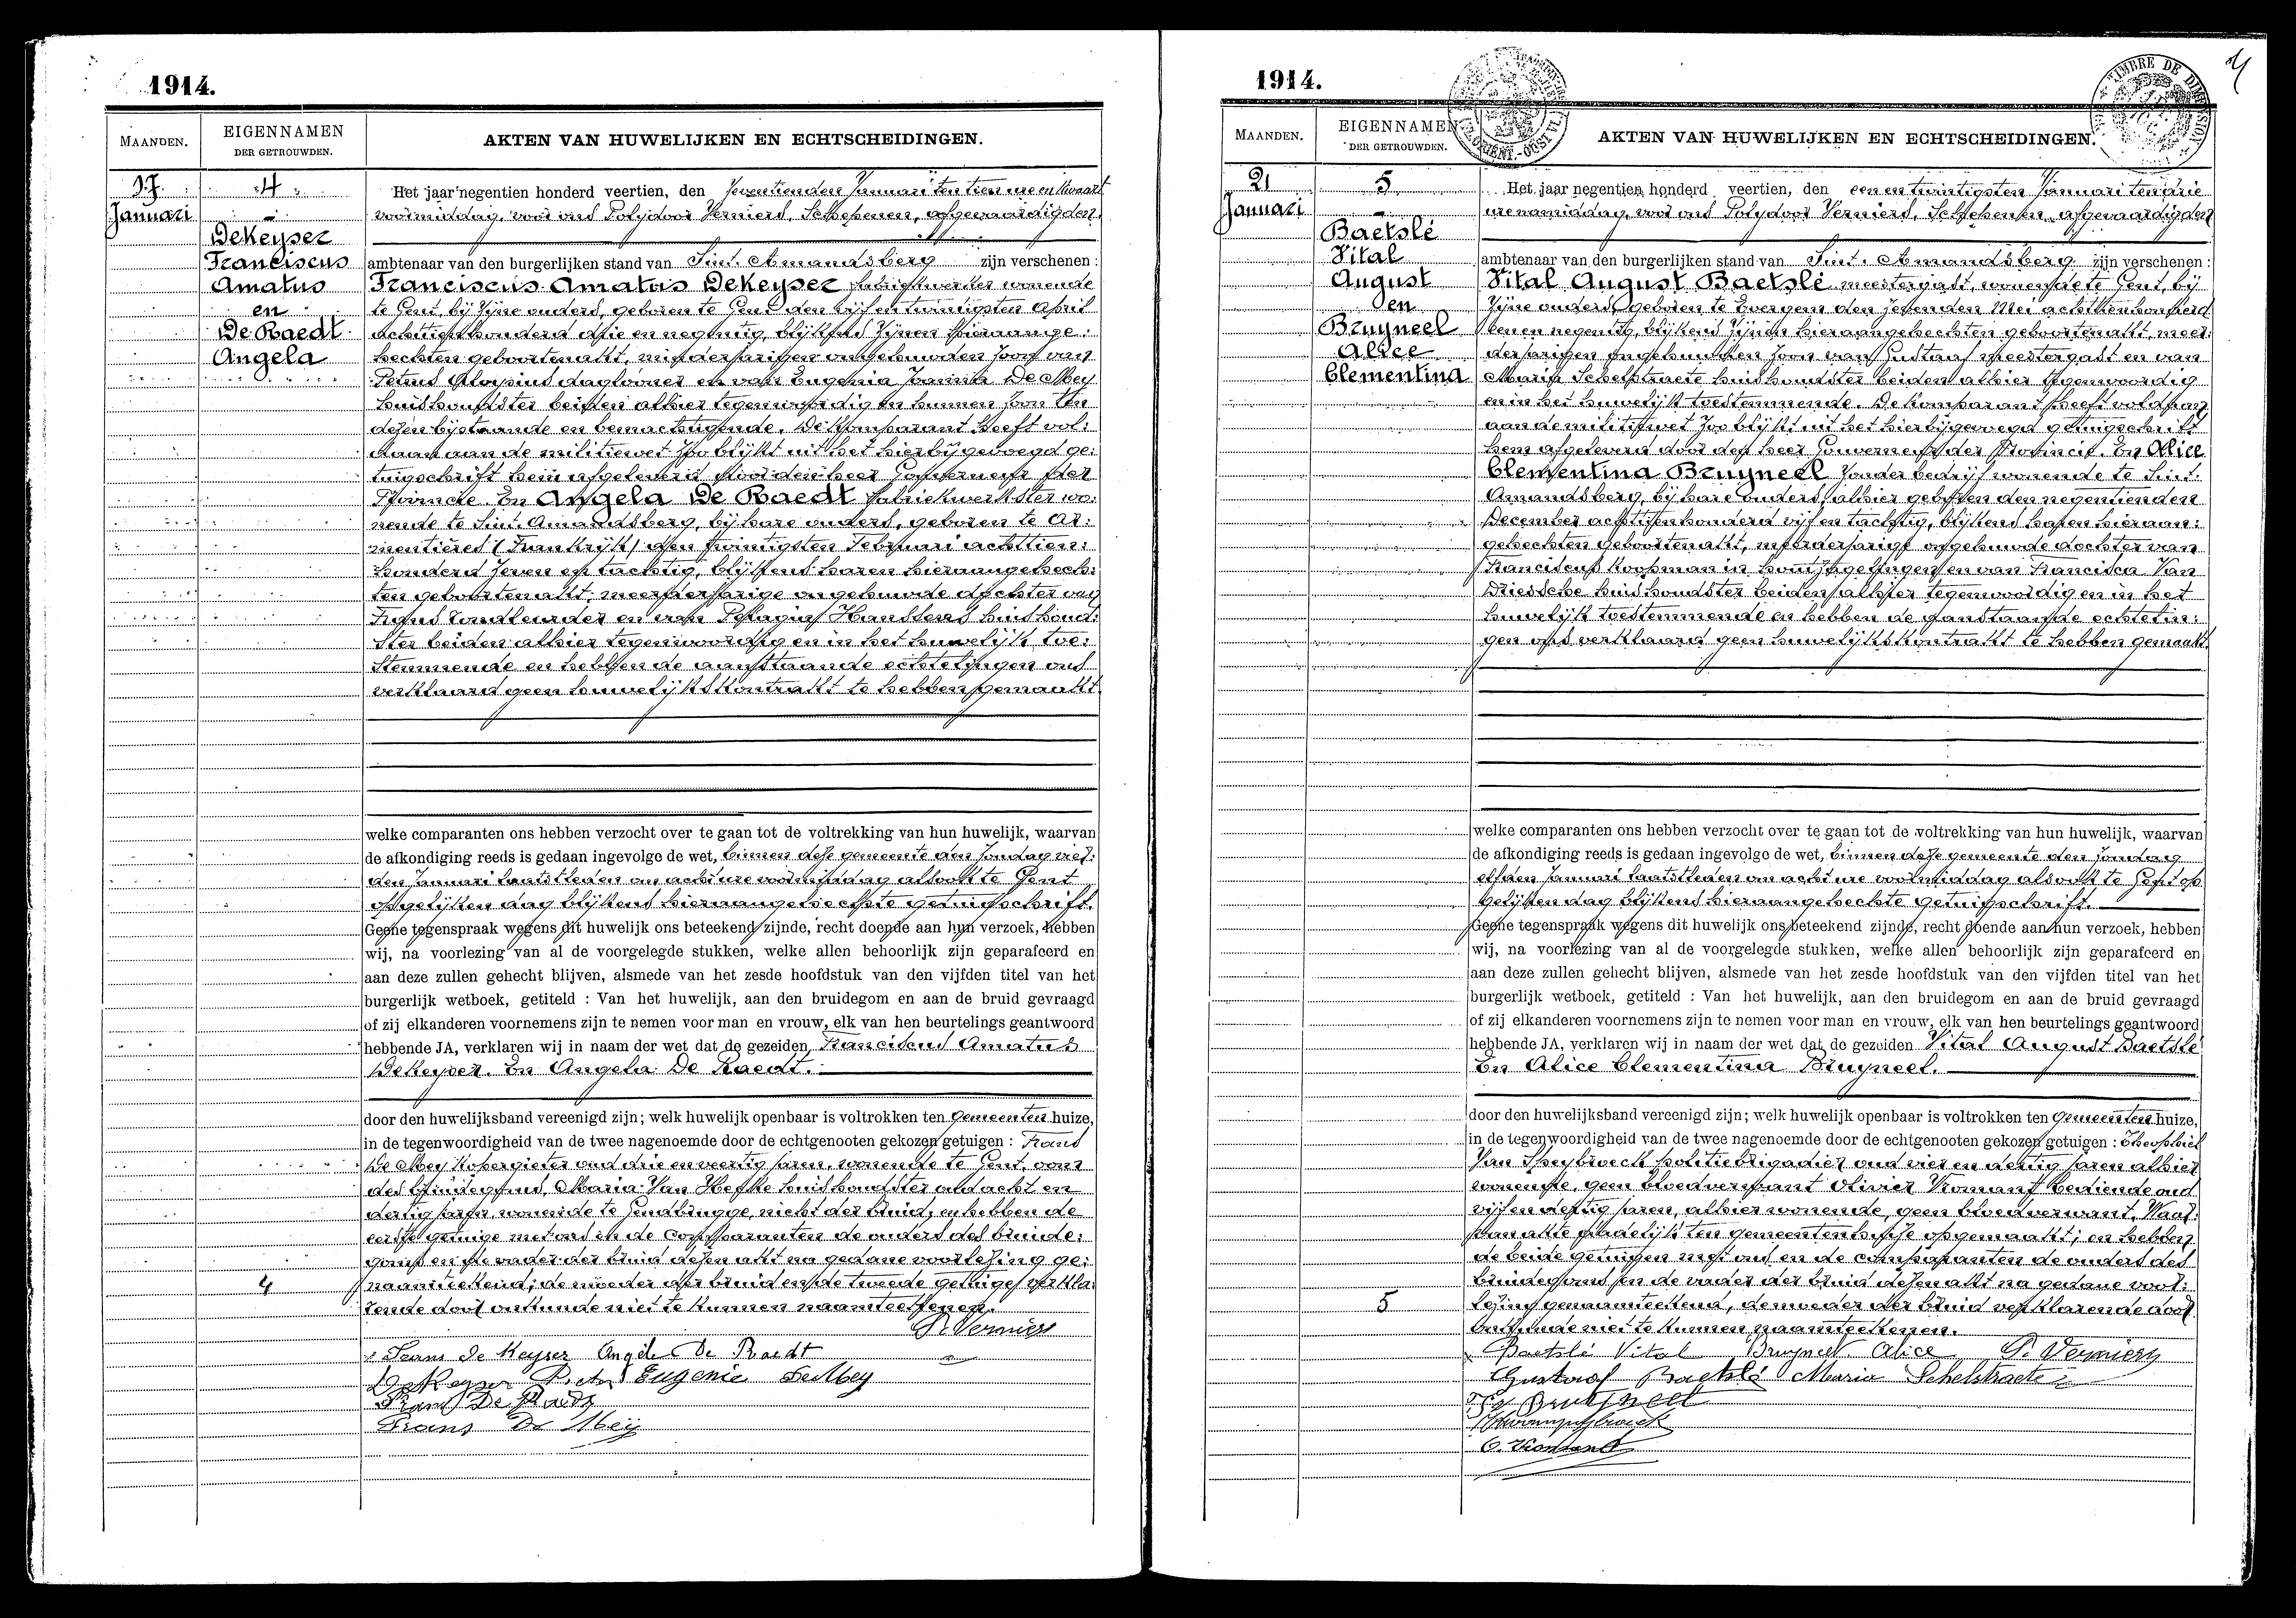 1914.
MAANDEN.
EIGENNAMEN
DER GETROUWDEN.
AKTEN VAN HUWELIJKEN EN ECHTSCHEIDINGEN.
17
Januari
4
DeKeyser
Franciscus
Amatus
en
De Raedt
Angela
Het jaar negentien honderd veertien, den zeventienden Januari ten tien ure en kwaart
voormiddag, voor ons Polydoor Vermiers, Schepenen, afgevaardigden
ambtenaar van den burgerlijken stand van Sint. Amandsberg zijn verschenen :
Franciscus Amatus DeKeyser fabriekwerker wonende
te Gent, bij zijne ouders, geboren te Gent den vijf en twintigsten April
achttienhonderd drie en negentig, blijkens zijnen hieraange:
hechten geboortenakt, minderjarigen ongehuwden zoon van
Petrus Aloysius daglooner en van Eugenia Joanna De Mey
huishoudster beiden alhier tegenwoordig en hunnen zoon ten
dezen bijstaande en bemachtigende. De komparant heeft vol:
daan aan de militiewet zoo blijkt uit het hierbijgevoegd ge:
tuigschrift hem afgeleverd door den heer Gouverneur der
Provincie. En Angela De Raedt fabriekwerkster wo:
nende te Sint. Amandsberg, bij hare ouders, geboren te Ar:
mentières (Frankrijk) den twintigsten Februari achttien:
honderd zeven en tachtig, blijkens haren hieraangehech:
ten geboortenakt, meerderjarige ongehuwde dochter van
Frans en van Pelagia Hanssens huishoud:
ster beiden alhier tegenwoordig en in het huwelijk toe:
stemmende en hebben de aanstaande echtelingen ons
verklaard geen huwelijkskontrakt te hebben gemaakt.
welke comparanten ons hebben verzocht over te gaan tot de voltrekking van hun huwelijk, waarvan
de afkondiging reeds is gedaan ingevolge de wet, binnen deze gemeente den zondag vier:
den Januari laatstleden om acht ure voormiddag alsook te Gent
op gelijken dag blijkens hieraangehechte getuigschrift.
Geene tegenspraak wegens dit huwelijk ons beteekend zijnde, recht doende aan hun verzoek, hebben
wij, na voorlezing van al de voorgelegde stukken, welke allen behoorlijk zijn geparafeerd en
aan deze zullen gehecht blijven, alsmede van het zesde hoofdstuk van den vijfden titel van het
burgerlijk wetboek, getiteld : Van het huwelijk, aan den bruidegom en aan de bruid gevraagd
of zij elkanderen voornemens zijn te nemen voor man en vrouw, elk van hen beurtelings geantwoord
hebbende JA, verklaren wij in naam der wet dat de gezeiden Franciscus Amatus
DeKeyser. En Angela De Raedt.
door den huwelijksband vereenigd zijn; welk huwelijk openbaar is voltrokken ten gemeenten huize,
in de tegenwoordigheid van de twee nagenoemde door de echtgenooten gekozen getuigen : Frans
De Mey kopergieter oud drie en veertig jaren, wonende te Gent, oom
des bruidegoms, Maria Van Hefke huishoudster oud acht en
dertig jaren, wonende te Gendbrugge, nicht der bruid, en hebben de
eerste getuige met ons en de comparanten de ouders des bruide:
goms en de vader der bruid dezen akt na gedane voorlezing ge:
naamteekend; de moeder der bruid en de tweede getuige verkla:
rende door onkunde niet te kunnen naamteekenen.
4
P. Vermiers
Frans de Keyser Angele De Raedt
DeKeyser Pieter Eugenie DeMey
Frans De Raedt
Frans De Meij
1914.
TIMBRE DE DIMENSION
MAANDEN.
EIGENNAMEN
DER GETROUWDEN.
AKTEN VAN HUWELIJKEN EN ECHTSCHEIDINGEN.
21
Januari
5
Baetslé
Vital
August
en
Bruyneel
Alice
Clementina
Het jaar negentien honderd veertien, den een en twintigsten Januari ten drie
ure namiddag, voor ons Polydoor Vermiers, Schepenen, afgevaardigden
ambtenaar van den burgerlijken stand van Sint. Amandsberg zijn verschenen :
Vital August Baetslé meestergast, wonende te Gent, bij
zijne ouders, geboren te Evergem den zevenden Mei achttienhonderd
een en negentig, blijkens zijnen hieraangehechten geboortenakt, meer:
derjarigen ongehuwden zoon van Gustaaf meestergast en van
Maria Schelstraete huishoudster beiden alhier tegenwoordig
en in het huwelijk toestemmende. De komparant heeft voldaan
aan de militiewet zoo blijkt uit het hierbijgevoegd getuigschrift
hem afgeleverd door den heer Gouverneur der Provincie. En Alice
Clementina Bruyneel zonder bedrijf wonende te Sint.
Amandsberg, bij hare ouders, alhier geboren den negentienden
December achttienhonderd vijf en tachtig, blijkens haren hieraan:
gehechten geboortenakt, meerderjarige ongehuwde dochter van
Franciscus koopman in en van Francisca Van
Driessche huishoudster beiden alhier tegenwoordig en in het
huwelijk toestemmende en hebben de aanstaande echtelin:
gen ons verklaard geen huwelijkskontrakt te hebben gemaakt.
welke comparanten ons hebben verzocht over te gaan tot de voltrekking van hun huwelijk, waarvan
de afkondiging reeds is gedaan ingevolge de wet, binnen deze gemeente den zondag
elfden Januari laatstleden om acht ure voormiddag alsook te Gent op
gelijken dag blijkens hieraangehechte getuigschrift.
Geene tegenspraak wegens dit huwelijk ons beteekend zijnde, recht doende aan hun verzoek, hebben
wij, na voorlezing van al de voorgelegde stukken, welke allen behoorlijk zijn geparafeerd en
aan deze zullen gehecht blijven, alsmede van het zesde hoofdstuk van den vijfden titel van het
burgerlijk wetboek, getiteld : Van het huwelijk, aan den bruidegom en aan de bruid gevraagd
of zij elkanderen voornemens zijn te nemen voor man en vrouw, elk van hen beurtelings geantwoord
hebbende JA, verklaren wij in naam der wet dat de gezeiden Vital August Baetslé
En Alice Clementina Bruyneel.
door den huwelijksband vereenigd zijn; welk huwelijk openbaar is voltrokken ten gemeenten huize,
in de tegenwoordigheid van de twee nagenoemde door de echtgenooten gekozen getuigen : Theophiel
Van Speybroeck politiebrigadier oud vier en dertig jaren alhier
wonende, geen bloedverwant Olivier Vromant bediende oud
vijf en dertig jaren, alhier wonende, geen bloedverwant. Waar:
van akte dadelijk ten gemeentenhuize opgemaakt; en hebben
de beide getuigen met ons en de comparanten de ouders des
bruidegoms en de vader der bruid dezen akt na gedane voor:
lezing genaamteekend, de moeder der bruid verklarende door
onkunde niet te kunnen naamteekenen.
5
Baetslé Vital Bruyneel Alice P. Vermiers
Gustaaf Baetslé Maria Schelstraete
Bruyneel
O. Vromant